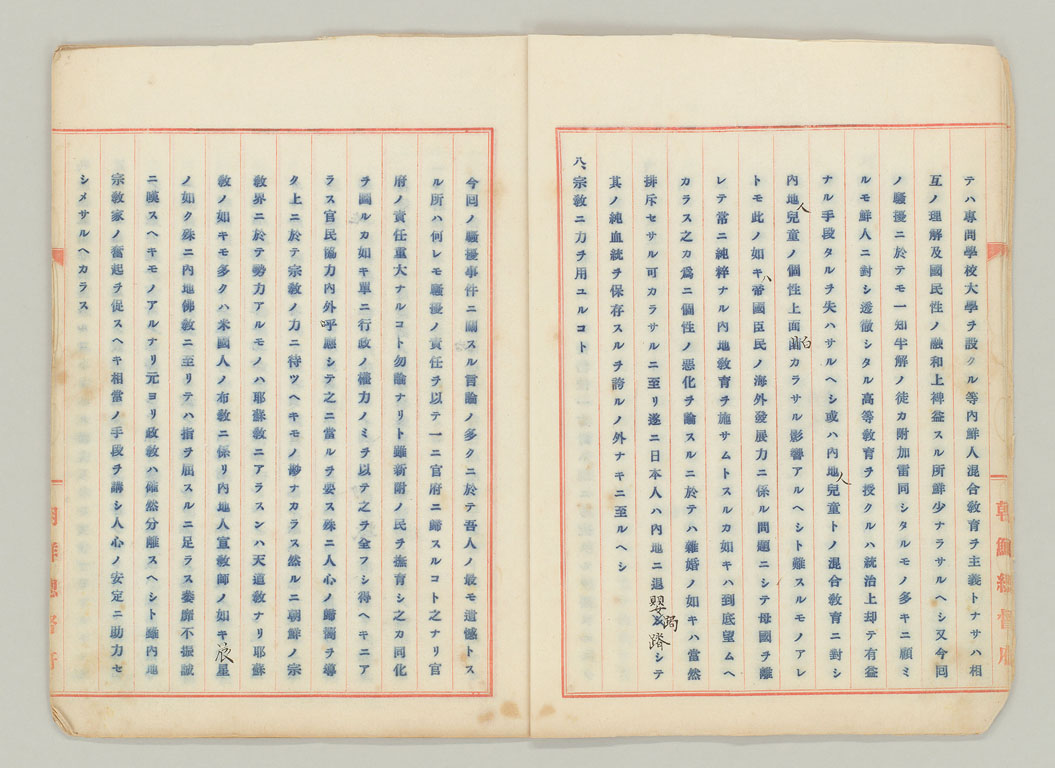 テハ專門學校大學ヲ設クル等內鮮人混合敎育ヲ主義トナサハ相
互ノ理解及國民性ノ融和上裨益スル所鮮少ナラサルヘシ又今回
ノ騷擾ニ於テモ一知半解ノ徒カ附加雷同シタルモノ多キニ顧ミ
ルモ鮮人ニ對シ透徹シタル高等敎育ヲ授クルハ統治上却テ有益
ナル手段タルヲ失ハサルヘシ或ハ內地人兒童トノ混合敎育ニ對シ
內地人兒童ノ個性上面白カラサル影響アルヘシト難スルモノアレ
トモ此ノ如キハ帝國臣民ノ海外發展力ニ係ル問題ニシテ母國ヲ離
レテ常ニ純粹ナル內地敎育ヲ施サムトスルカ如キハ到底望ムヘ
カラス之カ爲ニ個性ノ惡化ヲ論スルニ於テハ雜婚ノ如キハ當然
排斥セサル可カラサルニ至リ遂ニ日本人ハ內地ニ退嬰跼蹐シテ
其ノ純血統ヲ保存スルヲ誇ルノ外ナキニ至ルヘシ
八、宗敎ニ力ヲ用ユルコト
朝鮮總督府
今回ノ騷擾事件ニ關スル言論ノ多クニ於テ吾人ノ最モ遺憾トス
ル所ハ何レモ騷擾ノ責任ヲ以テ一ニ官府ニ歸スルコト之ナリ官
府ノ責任重大ナルコト勿論ナリト雖新附ノ民ヲ撫育シ之カ同化
ヲ圖ルカ如キ單ニ行政ノ權力ノミヲ以テ之ヲ全フシ得ヘキニア
ラス官民協力內外呼應シテ之ニ當ルヲ要ス殊ニ人心ノ歸嚮ヲ導
ク上ニ於テ宗敎ノ力ニ待ツヘキモノ尠ナカラス然ルニ朝鮮ノ宗
敎界ニ於テ勢力アルモノハ耶蘇敎ニアラスンハ天道敎ナリ耶蘇
敎ノ如キモ多クハ米國人ノ布敎ニ係リ內地人宣敎師ノ如キ晨星
ノ如ク殊ニ內地佛敎ニ至リテハ指ヲ屈スルニ足ラス萎靡不振誠
ニ嘆スヘキモノアルナリ元ヨリ政敎ハ確然分離スヘシト雖內地
宗敎家ノ奮起ヲ促スヘキ相當ノ手段ヲ講シ人心ノ安定ニ助力セ
シメサルヘカラス
朝鮮總督府